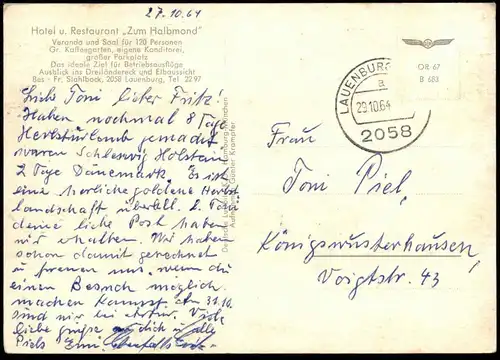 27.10.64
Hotel u. Restaurant „Zum Halbmond"
Veranda und Saal für 120 Personen
Gr. Kaffeegarten, eigene Konditorei,
großer Parkplatz
Das ideale Ziel für Betriebsausflüge
Ausblick ins Dreiländereck und Elbaussicht
Bes - Fr. Stahlbock, 2058 Lauenburg, Tel 22 97
Liebe Toni lieber Fritz!
Haben nochmal 8 Tage
Herbsturlaub gemacht
waren Schleswig Holstein
2 Tage Dänemark. Es ist
eine herrliche goldene Herbst
landschaft überall. L. Toni
deine liebe Post haben
wir erhalten. Wir haben
schon damit gerechnet
u freuen uns, wenn du
einen Besuch möglich
machen kannst. Am 31.10.
sind wir
liebe Grüße an dich u alle
Piels
Aufnahme: Günter Krampfer
LAUENBURG
a
29.10.64
2058
OR 67
B 683
Frau
Toni Piel,
Königswusterhausen,
Voigtstr. 43